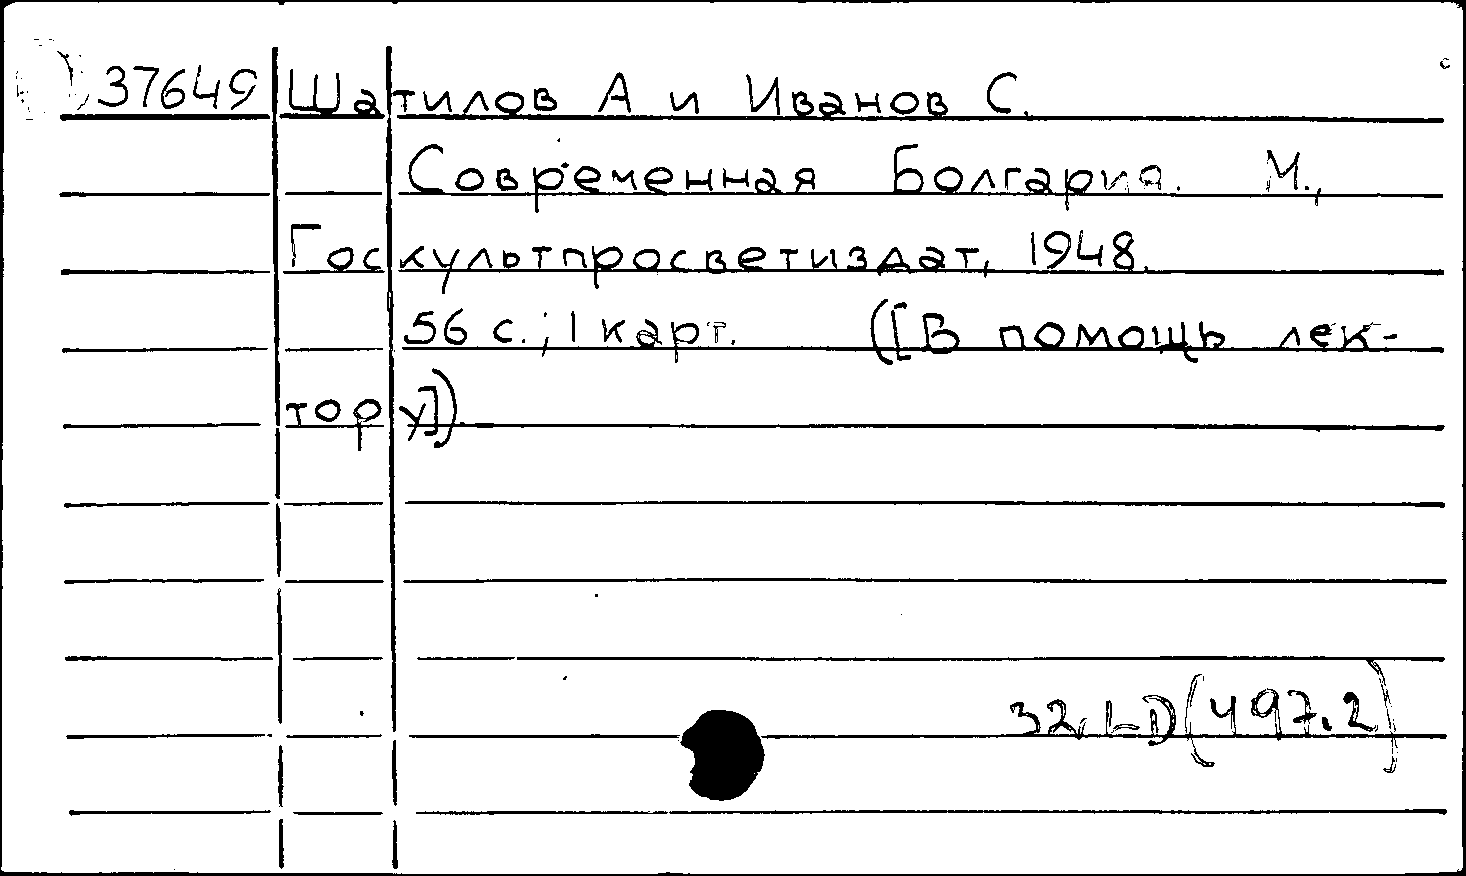 37649 Шатилов А и Иванов С.
Современная Болгария. М.,
Госкультпросветиздат, 1948.
56 с.; 1 карт. ([В помощь лек-
тору])
32.LD(497.2)